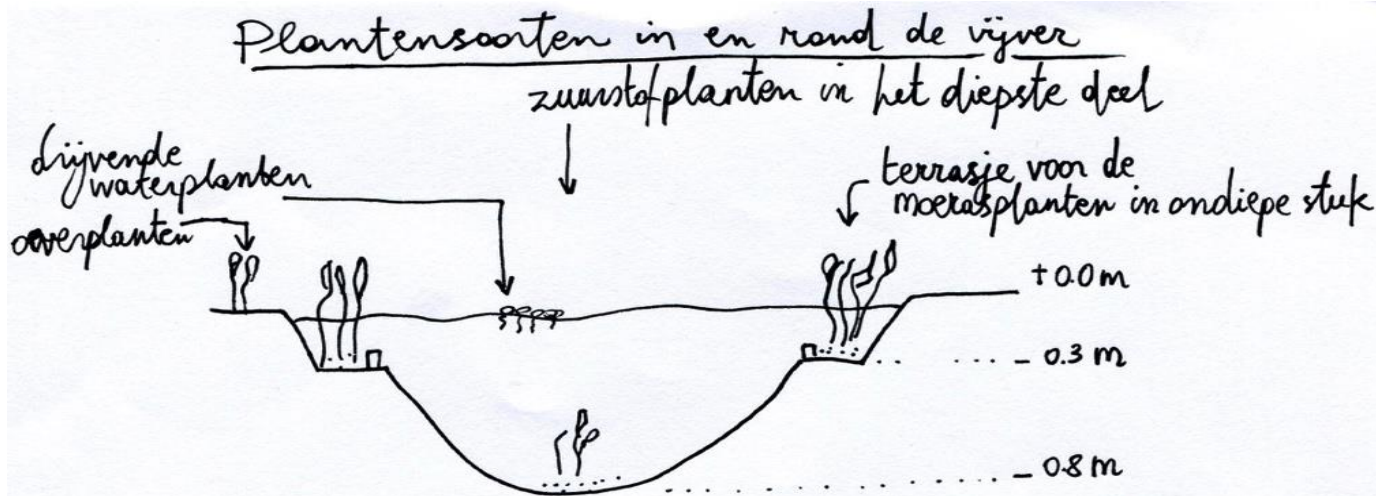 Plantensoorten in en rond de vijver
zuurstofplanten in het diepste deel
drijvende
waterplanten
oeverplanten
terrasje voor de
moerasplanten in ondiepe stuk
+ 0.0 m
- 0.3 m
- 0.8 m